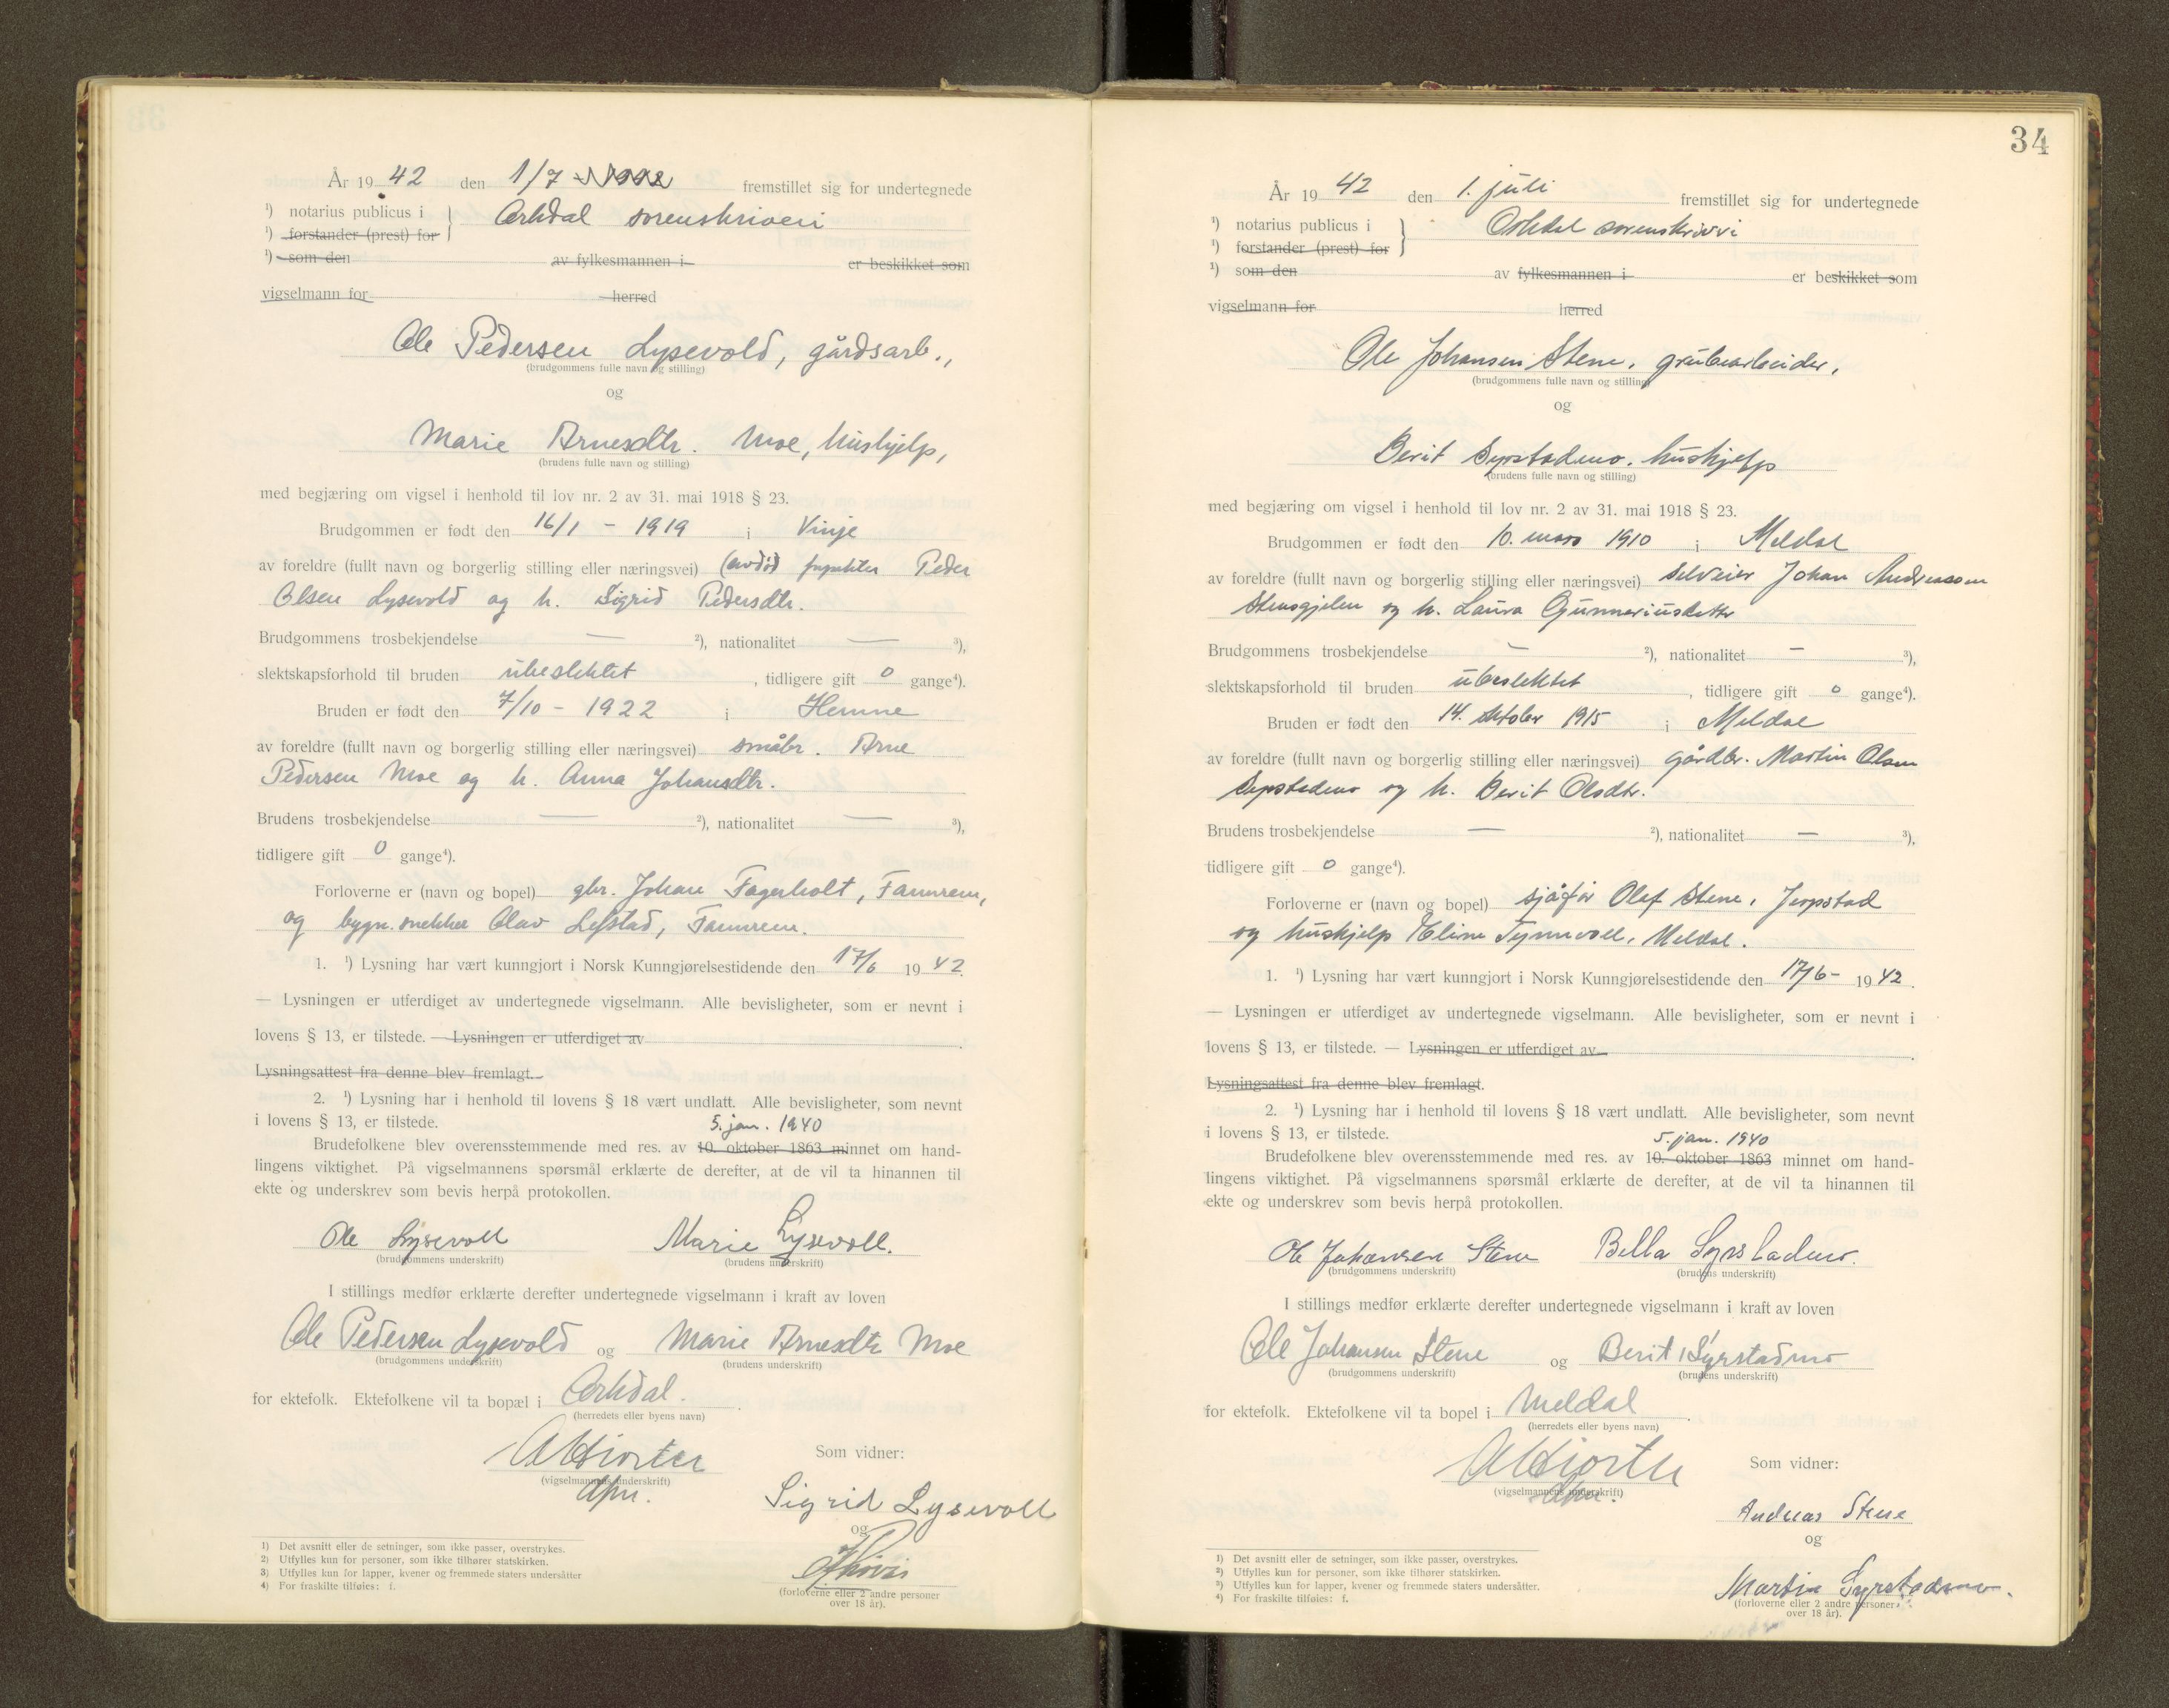 År 1942 den 1/7 fremstillet sig for undertegnede
¹) notarius publicus i } Orkdal sorenskriveri
¹) forstander (prest) for
¹) som den av fylkesmannen i er beskikket som
vigselmann for herred
Ole Pedersen Lysevold, gårdsarb.,
(brudgommens fulle navn og stilling)
og
Marie Arnesdtr. Moe, hushjelp,
(brudens fulle navn og stilling)
med begjæring om vigsel i henhold til lov nr. 2 av 31. mai 1918 § 23.
Brudgommen er født den 16/1 - 1919 i Vinje
av foreldre (fullt navn og borgerlig stilling eller næringsvei) (avdød) Peder
Olsen Lysevold og h. Sigrid Pedersdtr.
Brudgommens trosbekjendelse — ²), nationalitet — ³),
slektskapsforhold til bruden ubeslektet, tidligere gift 0 gange⁴).
Bruden er født den 7/10 - 1922 i Hemne
av foreldre (fullt navn og borgerlig stilling eller næringsvei) småbr. Arne
Pedersen Moe og h. Anna Johansdtr.
Brudens trosbekjendelse — ²), nationalitet — ³),
tidligere gift 0 gange⁴).
Forloverne er (navn og bopel) gbr. Johan Fagerholt, Fannrem,
og bygn. snekker Olav Lefstad, Fannrem.
1. ¹) Lysning har vært kunngjort i Norsk Kunngjørelsestidende den 17/6 1942.
— Lysningen er utferdiget av undertegnede vigselmann. Alle bevisligheter, som er nevnt i
lovens § 13, er tilstede. — Lysningen er utferdiget av .
Lysningsattest fra denne blev fremlagt.
2. ¹) Lysning har i henhold til lovens § 18 vært undlatt. Alle bevisligheter, som nevnt
i lovens § 13, er tilstede. 5. jan. 1940
Brudefolkene blev overensstemmende med res. av 10. oktober 1863 minnet om hand-
lingens viktighet. På vigselmannens spørsmål erklærte de derefter, at de vil ta hinannen til
ekte og underskrev som bevis herpå protokollen.
Ole Lysevoll Marie Lysevoll.
(brudgommens underskrift) (brudens underskrift)
I stillings medfør erklærte derefter undertegnede vigselmann i kraft av loven
Ole Pedersen Lysevold og Marie Arnesdtr Moe
(brudgommens underskrift) (brudens underskrift)
for ektefolk. Ektefolkene vil ta bopæl i Orkdal.
(herredets eller byens navn)
AHiorter Som vidner:
(vigselmannens underskrift)
Sigrid Lysevoll
og
(forloverne eller 2 andre personer
over 18 år).
1) Det avsnitt eller de setninger, som ikke passer, overstrykes.
2) Utfylles kun for personer, som ikke tilhører statskirken.
3) Utfylles kun for lapper, kvener og fremmede staters undersåtter
4) For fraskilte tilføies: f.
34
År 1942 den 1. juli fremstillet sig for undertegnede
¹) notarius publicus i } Orkdal sorenskriveri
¹) forstander (prest) for
¹) som den av fylkesmannen i er beskikket som
vigselmann for herred
Ole Johansen Stene, grubearbeider,
(brudgommens fulle navn og stilling)
og
Berit Syrstadmo, hushjelp
(brudens fulle navn og stilling)
med begjæring om vigsel i henhold til lov nr. 2 av 31. mai 1918 § 23.
Brudgommen er født den 10. mars 1910 i Meldal
av foreldre (fullt navn og borgerlig stilling eller næringsvei) selveier Johan Andreassen
Stensgjelen og h. Laura Gunneriusdatter
Brudgommens trosbekjendelse — ²), nationalitet — ³),
slektskapsforhold til bruden ubeslektet, tidligere gift 0 gange⁴).
Bruden er født den 14. oktober 1915 i Meldal
av foreldre (fullt navn og borgerlig stilling eller næringsvei) gårdbr. Martin Olsen
Syrstadmo og h. Berit Olsdtr.
Brudens trosbekjendelse — ²), nationalitet — ³),
tidligere gift 0 gange⁴).
Forloverne er (navn og bopel) sjåfør Olaf Stene, Jerpstad
og hushjelp Meldal.
1. ¹) Lysning har vært kunngjort i Norsk Kunngjørelsestidende den 17/6- 1942.
— Lysningen er utferdiget av undertegnede vigselmann. Alle bevisligheter, som er nevnt i
lovens § 13, er tilstede. — Lysningen er utferdiget av .
Lysningsattest fra denne blev fremlagt.
2. ¹) Lysning har i henhold til lovens § 18 vært undlatt. Alle bevisligheter, som nevnt
i lovens § 13, er tilstede. 5. jan. 1940
Brudefolkene blev overensstemmende med res. av 10. oktober 1863 minnet om hand-
lingens viktighet. På vigselmannens spørsmål erklærte de derefter, at de vil ta hinannen til
ekte og underskrev som bevis herpå protokollen.
Ole Johansen Stene Bella Syrstadmo.
(brudgommens underskrift) (brudens underskrift)
I stillings medfør erklærte derefter undertegnede vigselmann i kraft av loven
Ole Johansen Stene og Berit Syrstadmo
(brudgommens underskrift) (brudens underskrift)
for ektefolk. Ektefolkene vil ta bopel i Meldal.
(herredets eller byens navn)
AHiorter Som vidner:
(vigselmannens underskrift)
Andreas Stene
og
Martin Syrstadmo.
(forloverne eller 2 andre personer
over 18 år).
1) Det avsnitt eller de setninger, som ikke passer, overstrykes.
2) Utfylles kun for personer, som ikke tilhører statskirken.
3) Utfylles kun for lapper, kvener og fremmede staters undersåtter.
4) For fraskilte tilføies: f.